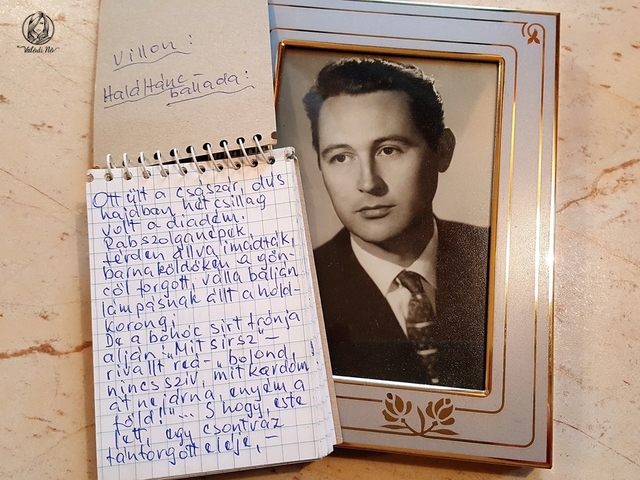 Valódi Nő
Villon:
Haláltánc-
ballada:
Ott ült a császár, dús
hajában hét csillag
volt a diadém.
Rabszolganépek
térden állva imádták,
barna köldökén a gön-
cöl forgott, válla balján
lámpásnak állt a hold-
korong;
De a bohóc sírt trónja
alján: „Mit sírsz" –
rivallt reá – „bolond,
nincs szív, mit kardom!
át ne járna, enyém a
föld!"... S hogy este
lett, egy csontváz
tántorgott eléje, –